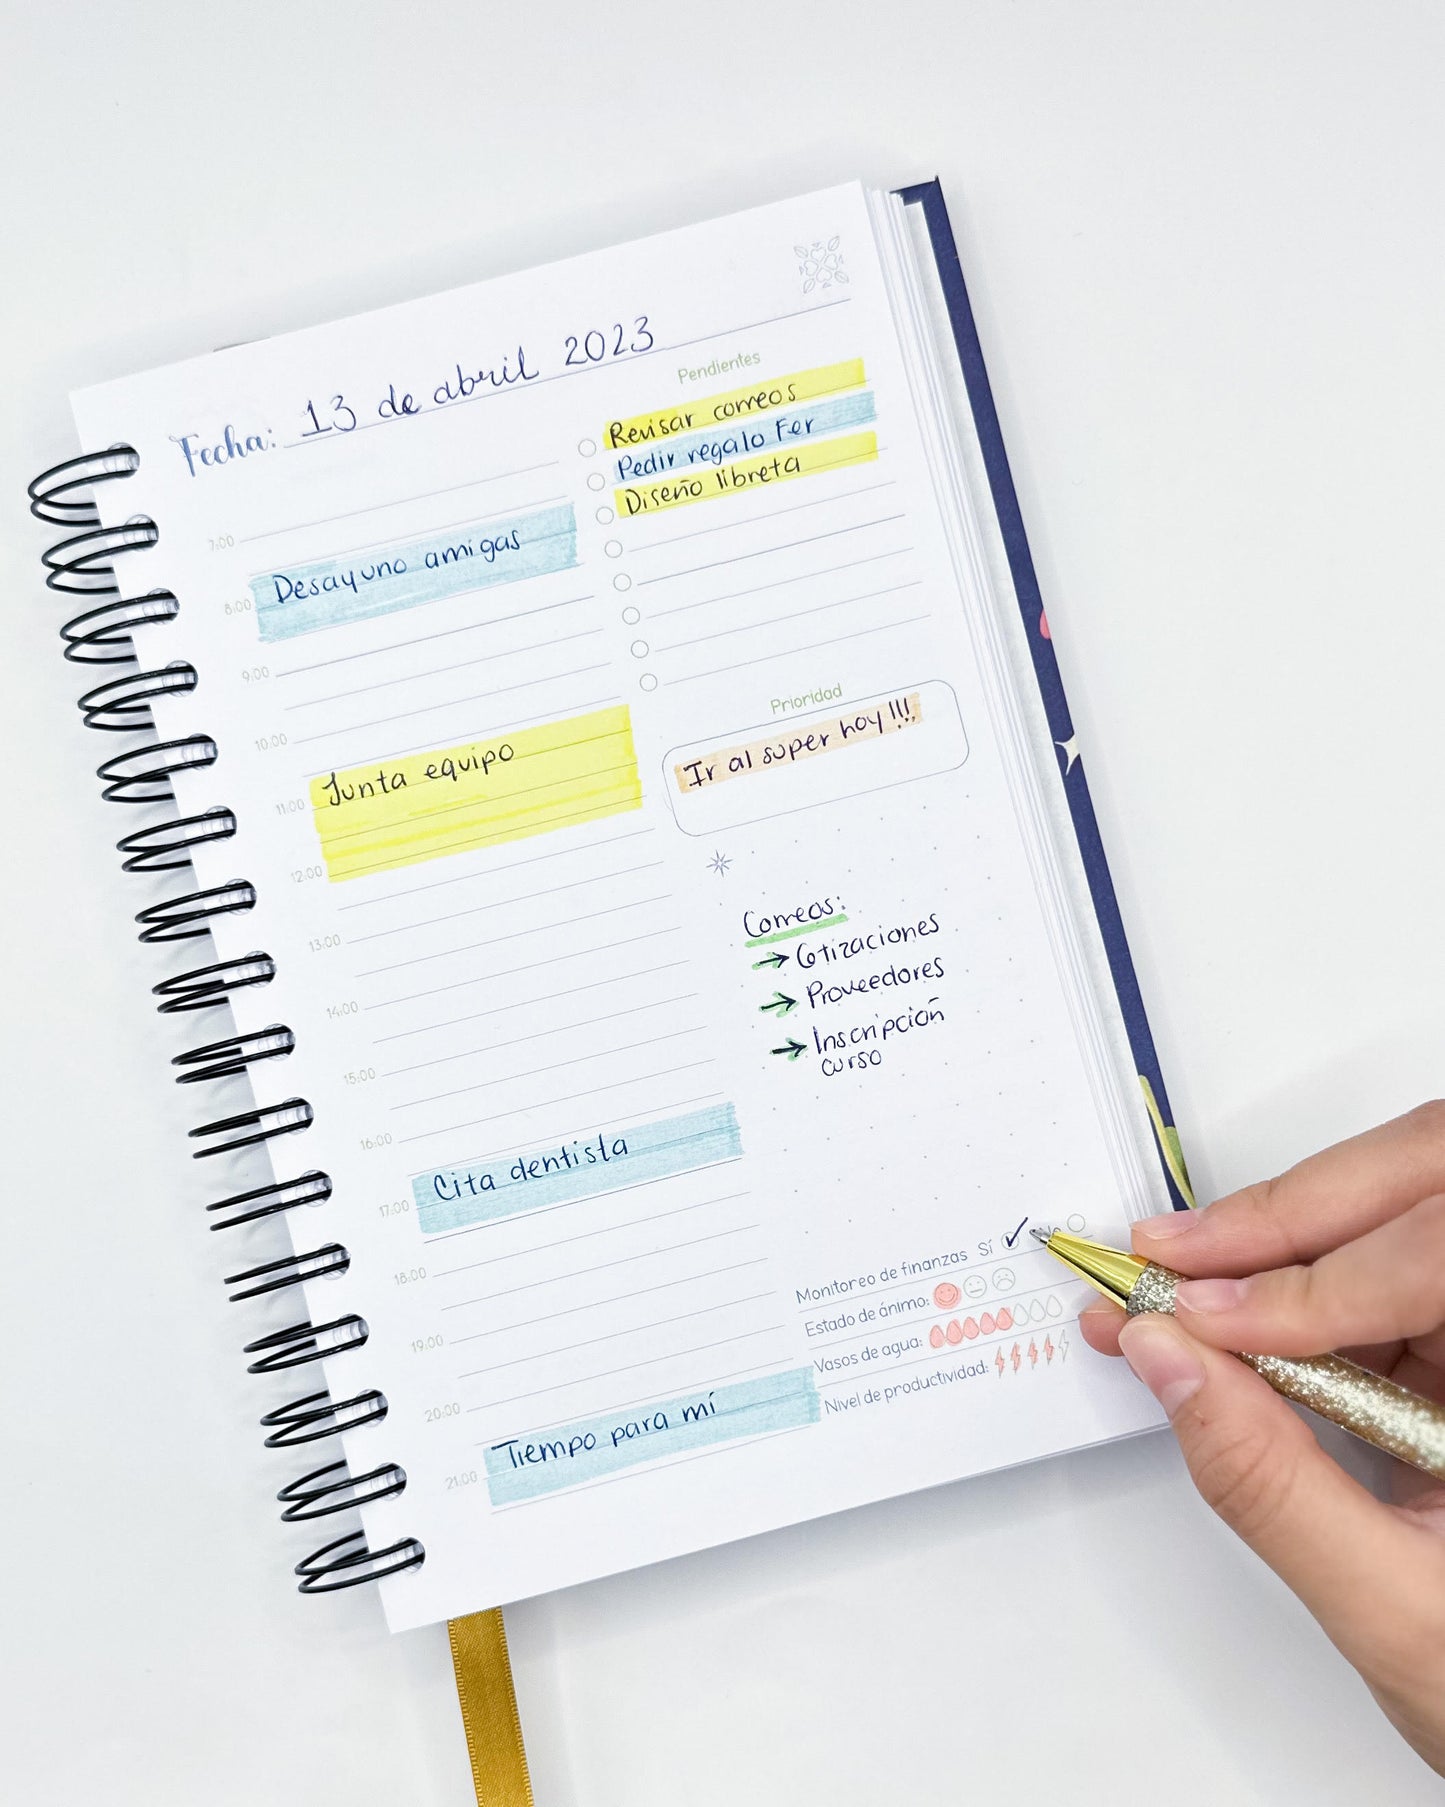 Fecha: 13 de abril 2023
7:00
8:00 Desayuno amigas
9:00
10:00
11:00 Junta equipo
12:00
13:00
14:00
15:00
16:00
17:00 Cita dentista
18:00
19:00
20:00
21:00 Tiempo para mí
Pendientes
Revisar correos
Pedir regalo Fer
Diseño libreta
Prioridad
Ir al super hoy!!!
Correos:
→ Cotizaciones
→ Proveedores
→ Inscripción
curso
Monitoreo de finanzas Sí ✓ No
Estado de ánimo:
Vasos de agua:
Nivel de productividad: